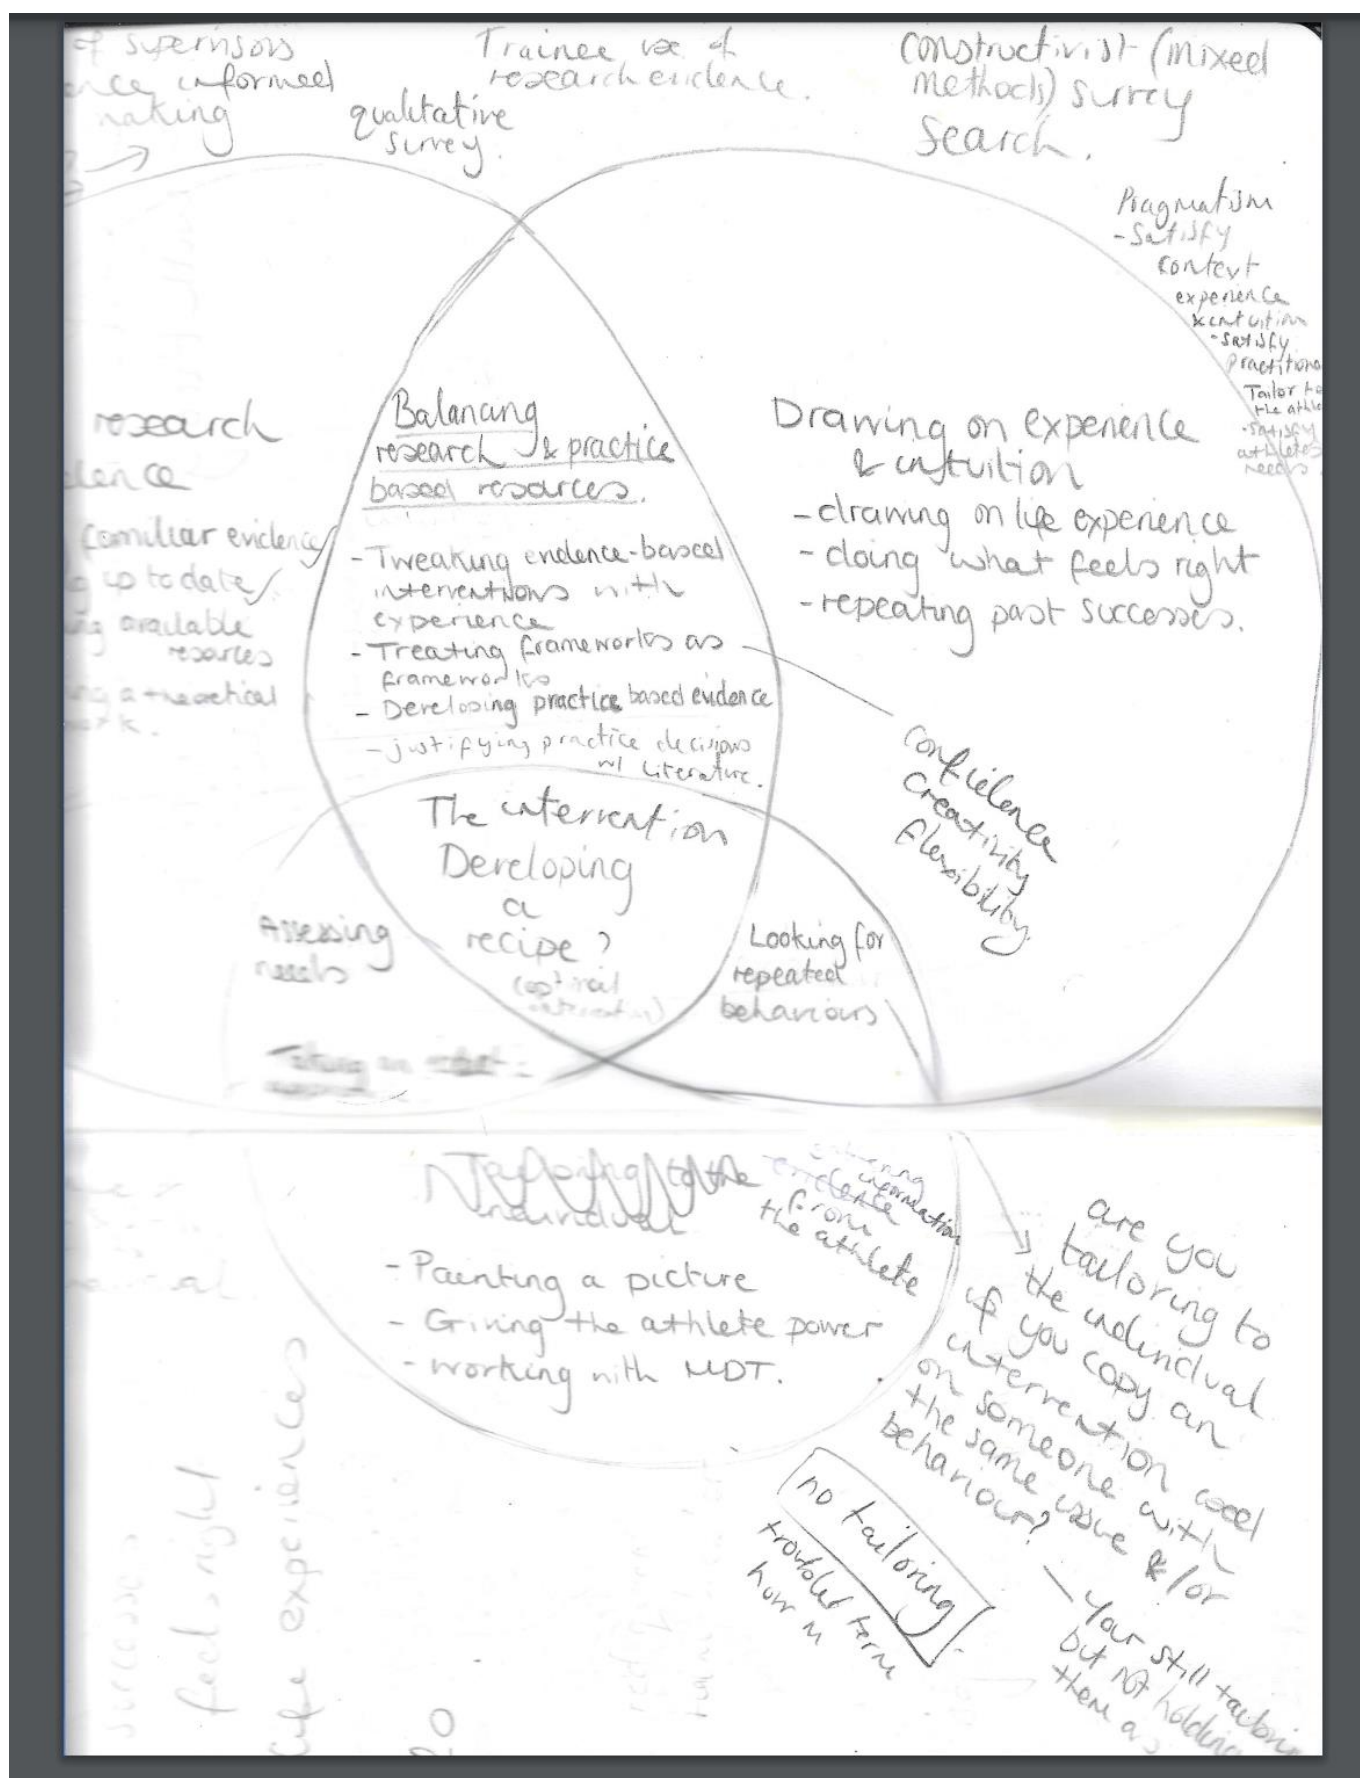 of supervisors
informed
making
qualitative
survey.
Trainee use of
research evidence.
constructivist (mixed
methods) survey
Search.
Pragmatism
- Satisfy
context
experience
& intuition
- satisfy
practitione
Tailor to
the athle
- satisfy
athletes
needs
research
dence
familiar evidence
up to date
available
resources
a theoretical
Balancing
research & practice
based resources.
- Tweaking evidence-based
interventions with
experience
- Treating frameworks as
frameworks
- Developing practice based evidence
- justifying practice decisions
w/ literature.
Drawing on experience
& intuition
- drawing on life experience
- doing what feels right
- repeating past successes.
confidence
Creativity
flexibility.
The intervention
Developing
a
recipe?
Assessing
needs
Looking for
repeated
behaviours
Tailoring to the
individual
information
evidence
from
the athlete
- Painting a picture
- Giving the athlete power
- working with MDT.
are you
tailoring to
the individual
if you copy an
intervention used
on someone with
the same issue &/or
behaviour?
- Your still tailoring
but not holding
them as
no tailoring
term
how
successes
feels right
life experiences
20